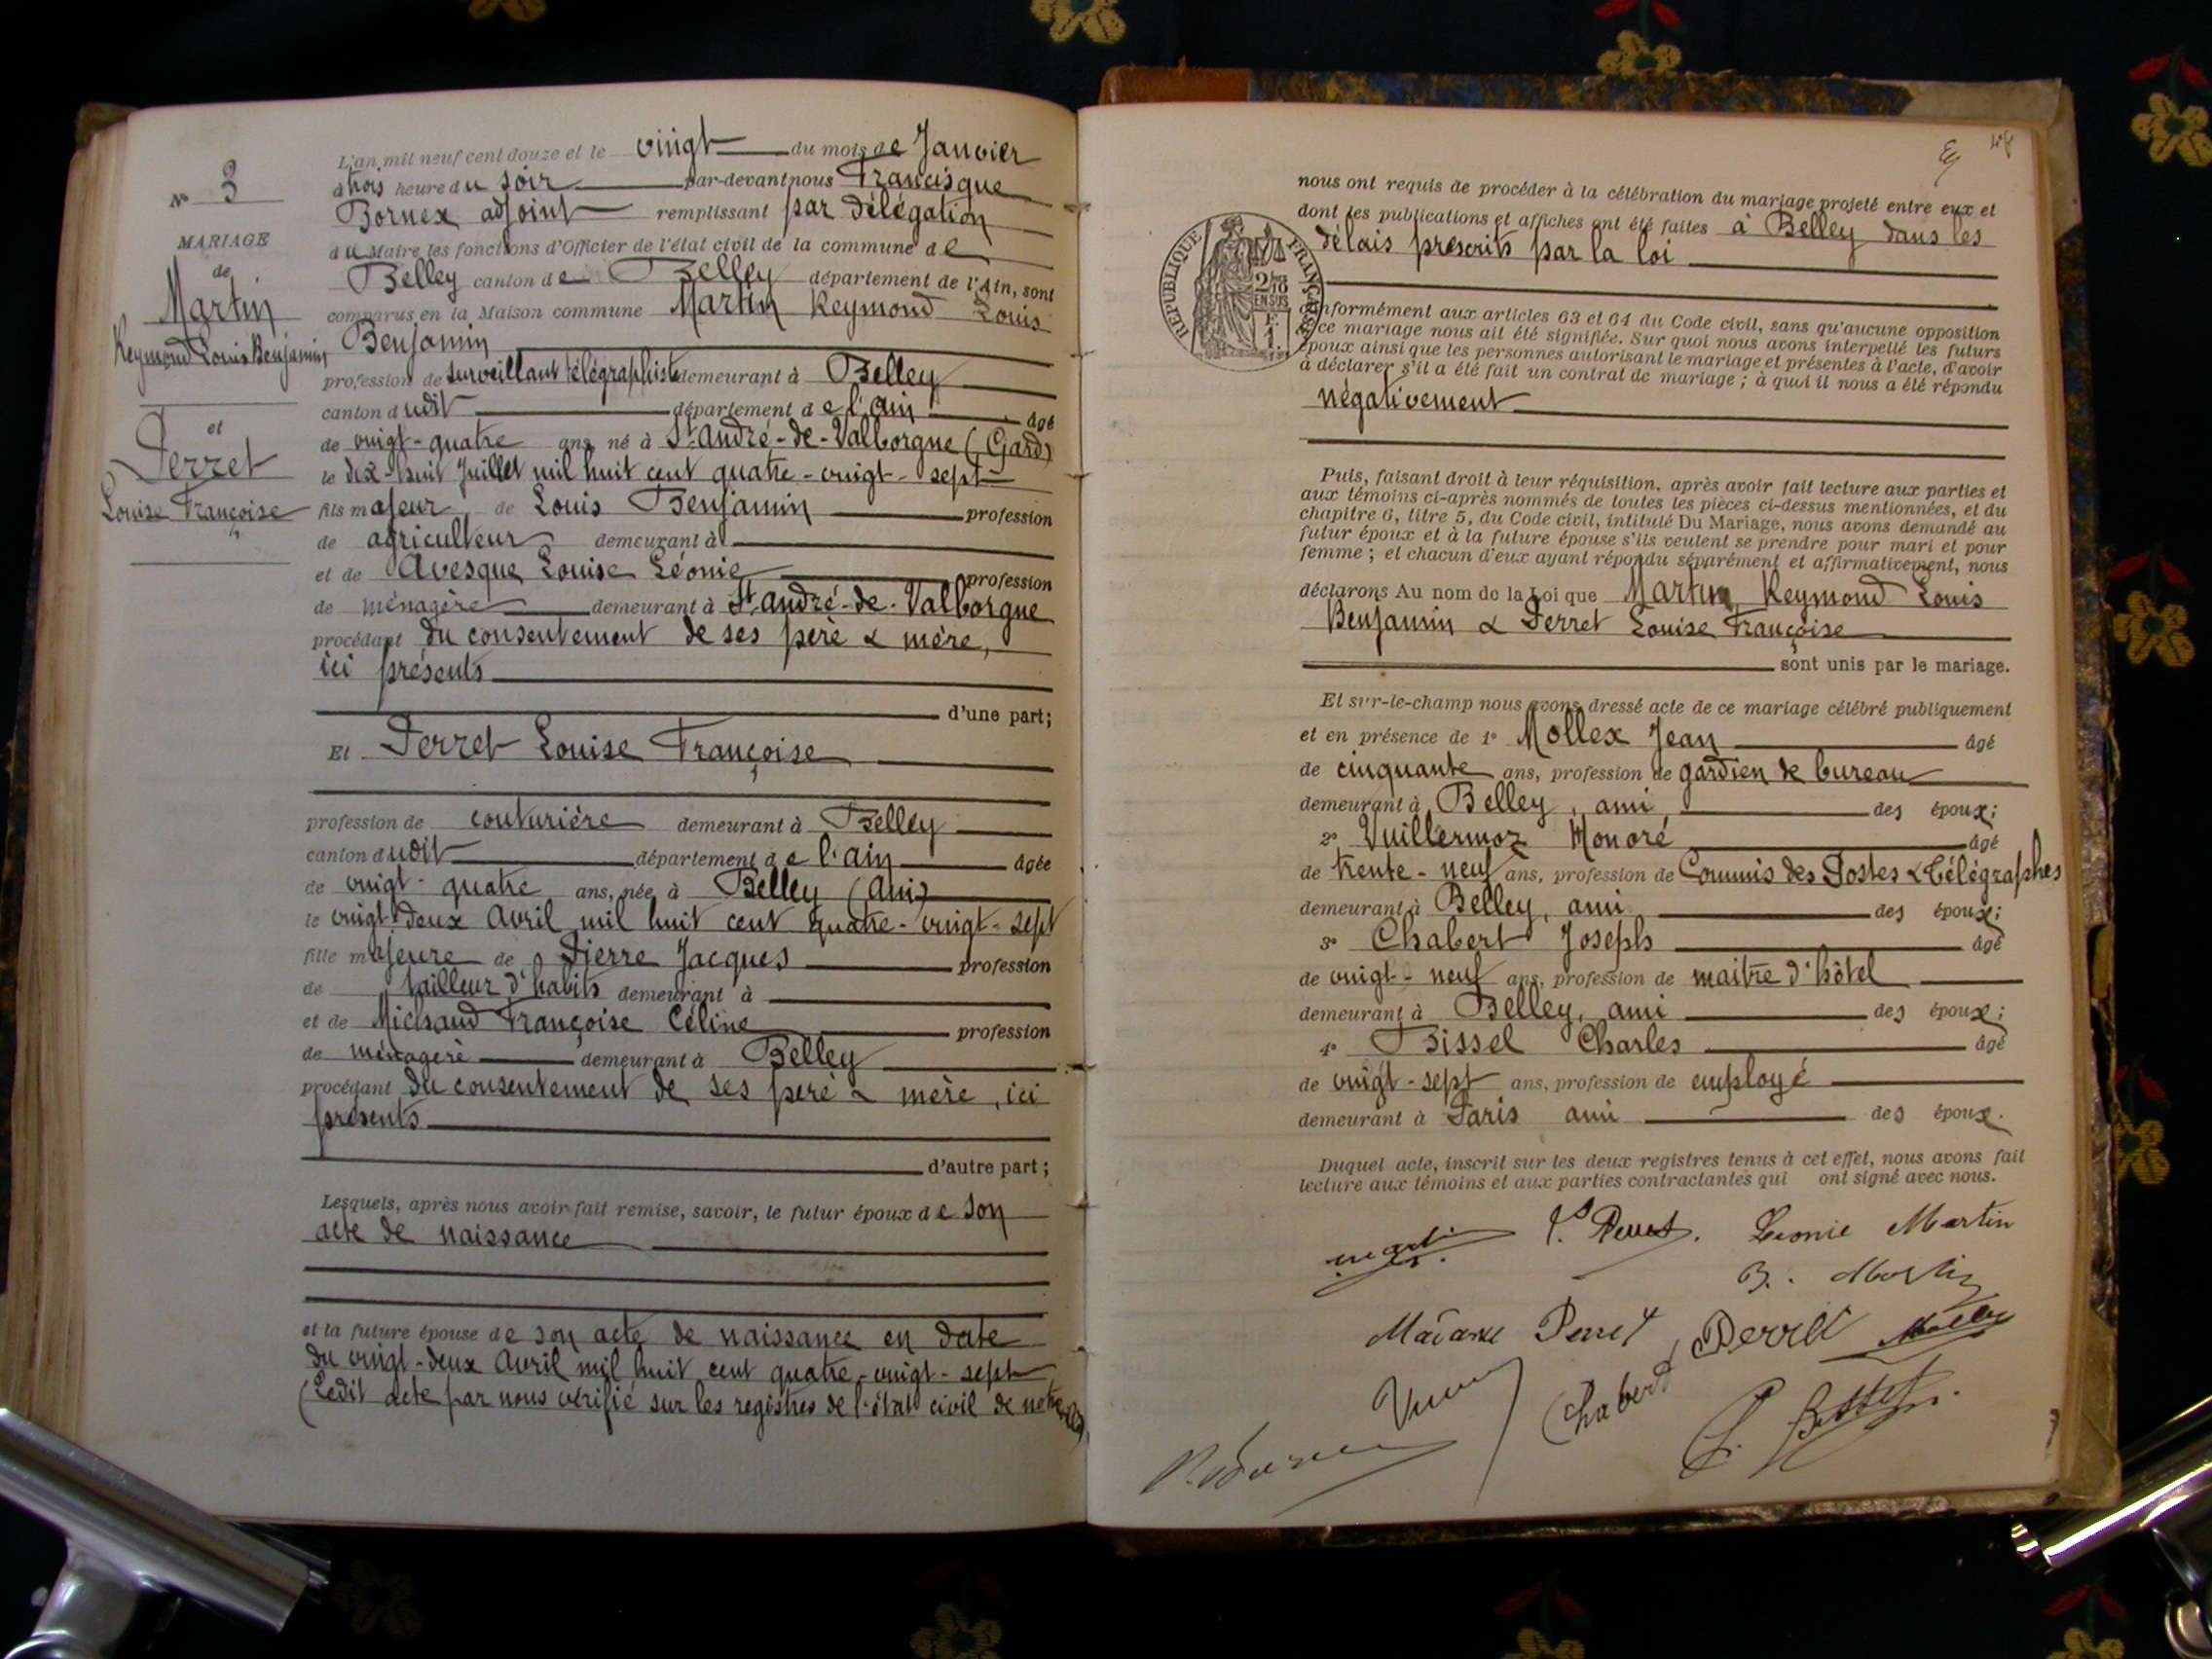 N° 3
MARIAGE
de
Martin
Reymond Louis Benjamin
et
Perret
Louise Françoise
L'an mil neuf cent douze et le vingt du mois de Janvier
à trois heure du soir par-devant nous Francisque
Bornex adjoint remplissant par délégation
du Maire les fonctions d'Officier de l'état civil de la commune de
Belley canton de Belley département de l'Ain, sont
comparus en la Maison commune Martin Reymond Louis
Benjamin
profession de surveillant télégraphiste demeurant à Belley
canton dudit département de l'Ain âgé
de vingt-quatre ans, né à St-André-de-Valborgne (Gard)
le dix-huit Juillet mil huit cent quatre-vingt-sept
fils majeur de Louis Benjamin profession
de agriculteur demeurant à
et de Avesque Louise Léonie profession
de ménagère demeurant à St André-de-Valborgne
procédant du consentement de ses père & mère,
ici présents
d'une part;
Et Perret Louise Françoise
profession de couturière demeurant à Belley
canton dudit département de l'Ain âgée
de vingt-quatre ans, née à Belley (Ain)
le vingt-deux Avril mil huit cent quatre-vingt-sept
fille majeure de Pierre Jacques profession
de tailleur d'habits demeurant à
et de Michaud Françoise Céline profession
de ménagère demeurant à Belley
procédant du consentement de ses père & mère, ici
présents
d'autre part;
Lesquels, après nous avoir fait remise, savoir, le futur époux de son
acte de naissance
et la future épouse de son acte de naissance en date
du vingt-deux Avril mil huit cent quatre-vingt-sept
(Ledit acte par nous vérifié sur les registres de l'état civil de notre ville)
nous ont requis de procéder à la célébration du mariage projeté entre eux et
dont les publications et affiches ont été faites à Belley dans les
délais prescrits par la loi
REPUBLIQUE FRANÇAISE
2/10
EN SUS
F.
1.
conformément aux articles 63 et 64 du Code civil, sans qu'aucune opposition
à ce mariage nous ait été signifiée. Sur quoi nous avons interpellé les futurs
époux ainsi que les personnes autorisant le mariage et présentes à l'acte, d'avoir
à déclarer s'il a été fait un contrat de mariage ; à quoi il nous a été répondu
négativement
Puis, faisant droit à leur réquisition, après avoir fait lecture aux parties et
aux témoins ci-après nommés de toutes les pièces ci-dessus mentionnées, et du
chapitre 6, titre 5, du Code civil, intitulé Du Mariage, nous avons demandé au
futur époux et à la future épouse s'ils veulent se prendre pour mari et pour
femme ; et chacun d'eux ayant répondu séparément et affirmativement, nous
déclarons Au nom de la Loi que Martin Reymond Louis
Benjamin & Perret Louise Françoise
sont unis par le mariage.
Et sur-le-champ nous avons dressé acte de ce mariage célébré publiquement
et en présence de 1° Mollex Jean âgé
de cinquante ans, profession de gardien de bureau
demeurant à Belley, ami des époux;
2° Vuillermoz Honoré âgé
de trente-neuf ans, profession de Commis des Postes & Télégraphes
demeurant à Belley, ami des époux;
3° Chabert Joseph âgé
de vingt-neuf ans, profession de maitre d'hôtel
demeurant à Belley, ami des époux;
4° Bissel Charles âgé
de vingt-sept ans, profession de employé
demeurant à Paris ami des époux.
Duquel acte, inscrit sur les deux registres tenus à cet effet, nous avons fait
lecture aux témoins et aux parties contractantes qui ont signé avec nous.
Martin L. Perret. Leonie Martin
B. Martin
Madame Perret Perret Mollex
Chabert